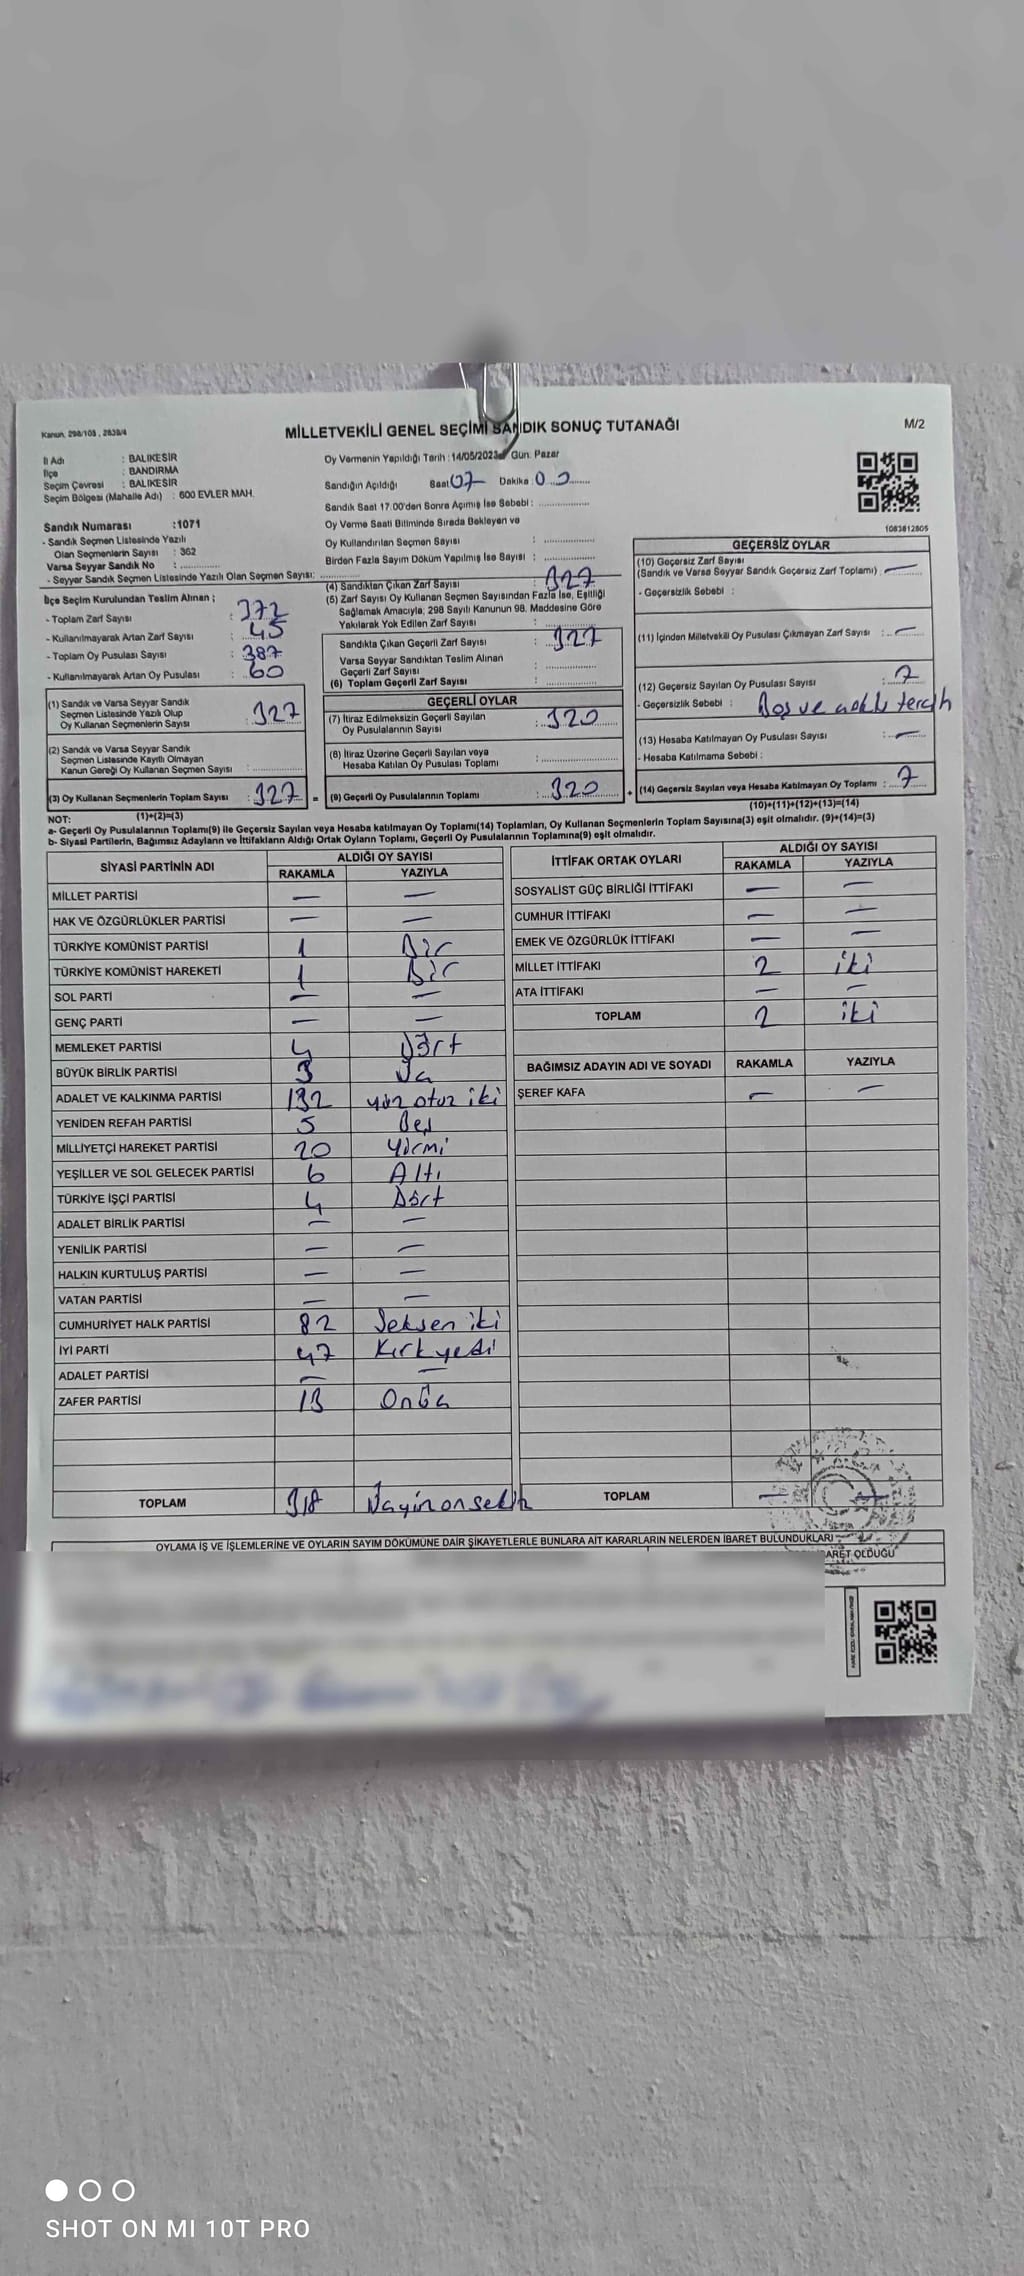 Kanun, 298/105 , 2839/4
MİLLETVEKİLİ GENEL SEÇİMİ SANDIK SONUÇ TUTANAĞI
M/2
İl Adı : BALIKESİR
İlçe : BANDIRMA
Seçim Çevresi : BALIKESİR
Seçim Bölgesi (Mahalle Adı) : 600 EVLER MAH.
Oy Vermenin Yapıldığı Tarih : 14/05/2023 Gün: Pazar
Sandığın Açıldığı Saat 07 Dakika 00
Sandık Saat 17.00'den Sonra Açılmış İse Sebebi :
Oy Verme Saati Bitiminde Sırada Bekleyen ve
Oy Kullandırılan Seçmen Sayısı :
Birden Fazla Sayım Döküm Yapılmış İse Sayısı :
1083812805
Sandık Numarası :1071
- Sandık Seçmen Listesinde Yazılı
Olan Seçmenlerin Sayısı : 362
Varsa Seyyar Sandık No :
- Seyyar Sandık Seçmen Listesinde Yazılı Olan Seçmen Sayısı:
İlçe Seçim Kurulundan Teslim Alınan ;
- Toplam Zarf Sayısı : 372
- Kullanılmayarak Artan Zarf Sayısı : 45
- Toplam Oy Pusulası Sayısı : 387
- Kullanılmayarak Artan Oy Pusulası : 60
(1) Sandık ve Varsa Seyyar Sandık
Seçmen Listesinde Yazılı Olup
Oy Kullanan Seçmenlerin Sayısı : 327
(2) Sandık ve Varsa Seyyar Sandık
Seçmen Listesinde Kayıtlı Olmayan
Kanun Gereği Oy Kullanan Seçmen Sayısı :
(3) Oy Kullanan Seçmenlerin Toplam Sayısı : 327 =
(1)+(2)=(3)
(4) Sandıktan Çıkan Zarf Sayısı : 327
(5) Zarf Sayısı Oy Kullanan Seçmen Sayısından Fazla İse, Eşitliği
Sağlamak Amacıyla, 298 Sayılı Kanunun 98. Maddesine Göre
Yakılarak Yok Edilen Zarf Sayısı :
Sandıkta Çıkan Geçerli Zarf Sayısı : 327
Varsa Seyyar Sandıktan Teslim Alınan
Geçerli Zarf Sayısı :
(6) Toplam Geçerli Zarf Sayısı :
GEÇERLİ OYLAR
(7) İtiraz Edilmeksizin Geçerli Sayılan
Oy Pusulalarının Sayısı : 320
(8) İtiraz Üzerine Geçerli Sayılan veya
Hesaba Katılan Oy Pusulası Toplamı :
(9) Geçerli Oy Pusulalarının Toplamı : 320 +
GEÇERSİZ OYLAR
(10) Geçersiz Zarf Sayısı
(Sandık ve Varsa Seyyar Sandık Geçersiz Zarf Toplamı) : —
- Geçersizlik Sebebi :
(11) İçinden Milletvekili Oy Pusulası Çıkmayan Zarf Sayısı : —
(12) Geçersiz Sayılan Oy Pusulası Sayısı : 7
- Geçersizlik Sebebi : Boş ve tercih
(13) Hesaba Katılmayan Oy Pusulası Sayısı : —
- Hesaba Katılmama Sebebi :
(14) Geçersiz Sayılan veya Hesaba Katılmayan Oy Toplamı : 7
(10)+(11)+(12)+(13)=(14)
NOT:
a- Geçerli Oy Pusulalarının Toplamı(9) ile Geçersiz Sayılan veya Hesaba katılmayan Oy Toplamı(14) Toplamları, Oy Kullanan Seçmenlerin Toplam Sayısına(3) eşit olmalıdır. (9)+(14)=(3)
b- Siyasi Partilerin, Bağımsız Adayların ve İttifakların Aldığı Ortak Oyların Toplamı, Geçerli Oy Pusulalarının Toplamına(9) eşit olmalıdır.
SİYASİ PARTİNİN ADI ALDIĞI OY SAYISI
RAKAMLA YAZIYLA
MİLLET PARTİSİ — —
HAK VE ÖZGÜRLÜKLER PARTİSİ — —
TÜRKİYE KOMÜNİST PARTİSİ 1 Bir
TÜRKİYE KOMÜNİST HAREKETİ 1 Bir
SOL PARTİ — —
GENÇ PARTİ — —
MEMLEKET PARTİSİ 4 Dört
BÜYÜK BİRLİK PARTİSİ 3 Üç
ADALET VE KALKINMA PARTİSİ 132 yüz otuz iki
YENİDEN REFAH PARTİSİ 5 Beş
MİLLİYETÇİ HAREKET PARTİSİ 20 Yirmi
YEŞİLLER VE SOL GELECEK PARTİSİ 6 Altı
TÜRKİYE İŞÇİ PARTİSİ 4 Dört
ADALET BİRLİK PARTİSİ — —
YENİLİK PARTİSİ — —
HALKIN KURTULUŞ PARTİSİ — —
VATAN PARTİSİ — —
CUMHURİYET HALK PARTİSİ 82 Seksen iki
İYİ PARTİ 47 Kırk yedi
ADALET PARTİSİ — —
ZAFER PARTİSİ 13 Onüç
TOPLAM 318 Üçyüz on sekiz
İTTİFAK ORTAK OYLARI ALDIĞI OY SAYISI
RAKAMLA YAZIYLA
SOSYALİST GÜÇ BİRLİĞİ İTTİFAKI — —
CUMHUR İTTİFAKI — —
EMEK VE ÖZGÜRLÜK İTTİFAKI — —
MİLLET İTTİFAKI 2 iki
ATA İTTİFAKI — —
TOPLAM 2 iki
BAĞIMSIZ ADAYIN ADI VE SOYADI RAKAMLA YAZIYLA
ŞEREF KAFA — —
TOPLAM — —
OYLAMA İŞ VE İŞLEMLERİNE VE OYLARIN SAYIM DÖKÜMÜNE DAİR ŞİKAYETLERLE BUNLARA AİT KARARLARIN NELERDEN İBARET BULUNDUKLARI
ARET OLDUĞU
SHOT ON MI 10T PRO